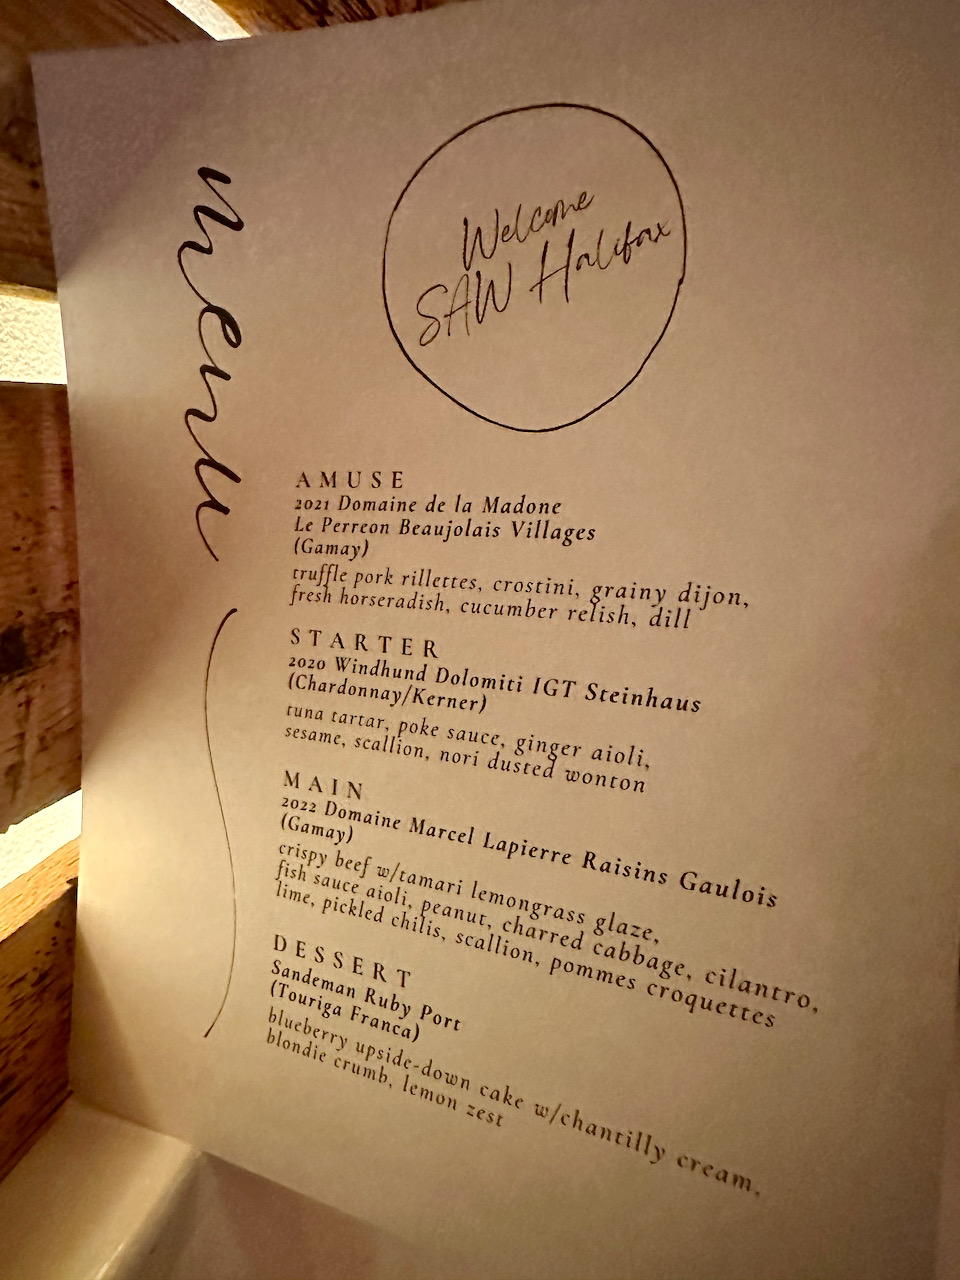 menu
Welcome
SAW Halifax
AMUSE
2021 Domaine de la Madone
Le Perreon Beaujolais Villages
(Gamay)
truffle pork rillettes, crostini, grainy dijon,
fresh horseradish, cucumber relish, dill
STARTER
2020 Windhund Dolomiti IGT Steinhaus
(Chardonnay/Kerner)
tuna tartar, poke sauce, ginger aioli,
sesame, scallion, nori dusted wonton
MAIN
2022 Domaine Marcel Lapierre Raisins Gaulois
(Gamay)
crispy beef w/tamari lemongrass glaze,
fish sauce aioli, peanut, charred cabbage, cilantro,
lime, pickled chilis, scallion, pommes croquettes
DESSERT
Sandeman Ruby Port
(Touriga Franca)
blueberry upside-down cake w/chantilly cream,
blondie crumb, lemon zest